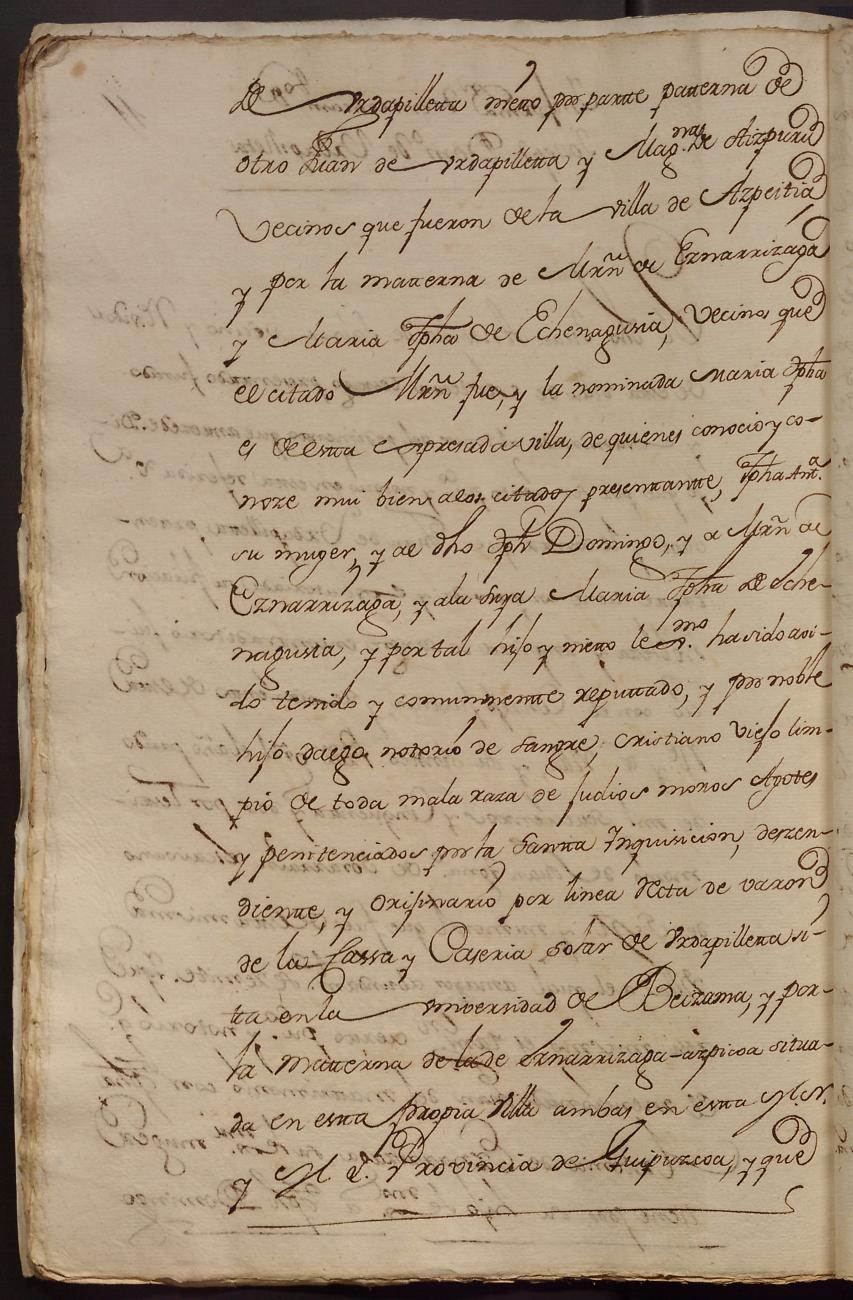 De Vrdapilletta nietto por partte patterna de
otro Juan de Vrdapilletta y Mag.na de Aizpuru
Vecinos que fueron de la villa de Azpeitia
y por la matterna de Mrñ de Eznarrizaga
y Maria Jpha de Echenagusia, Vecino que
el citado Mrñ fue, y la nominada Maria Jpha
es de estta expresada villa, de quienes conocio y co-
noze mui bien a los citados presenttantte, Jpha Ant.a
su muger, y al dho Jph Domingo, y a Mrñ de
Eznarrizaga, y a la suya Maria Jpha de Eche-
nagusia, y por tal hijo y nietto lexmo. ha sido avi-
do tenido y comunmentte reputtado, y por noble
hijo dalgo notorio de sangre, cristiano viejo lim-
pio de toda mala raza de judios moros Agotes
y penitenciados por la Santta Inquisicion, deszen-
diente, y orijinario por linea recta de varon
de la Cassa y Caseria solar de Vrdapilletta si-
tta en la Vniversidad de Beizama, y por-
la matterna de la de Eznarrizaga-azpicoa situa-
da en estta propia Villa ambas en estta M.N.
y M.L. Provincia de Guipuzcoa, y que